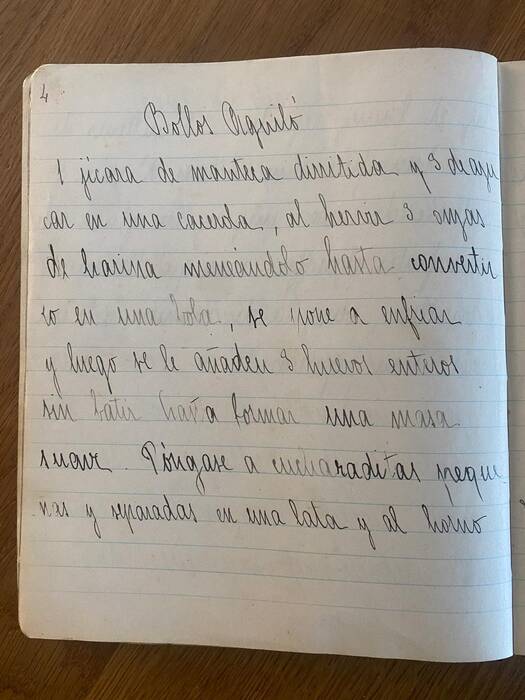 4
Bollos Aguiló
1 jícara de manteca dirritida y 3 de azu
car en una cacerola, al hervir 3 onzas
de harina meneándolo hasta convertir
lo en una bola, se pone a enfriar
y luego se le añaden 3 huevos enteros
sin batir hasta formar una masa
suave. Póngase a cucharaditas peque
ñas y separadas en una lata y al horno